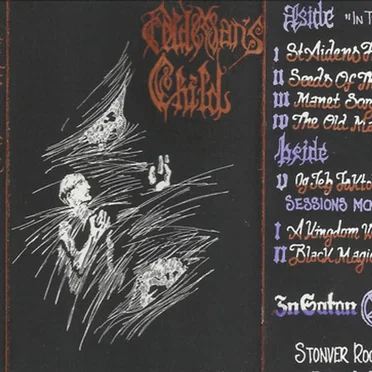 Old Man's
Child
Aside "In T
I St Aidens F
II Seeds Of Th
III Manet Sor
IV The Old Ma
Bside
V Og Jeg Iakta
SESSIONS MO
I A Kingdom W
II Black Magic
In Satan
STONVER ROO